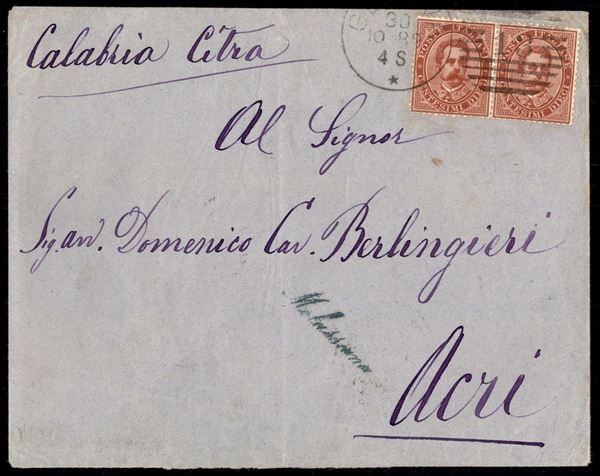 Calabria Citra
30
10 8
4 S
*
POSTE ITALIANE
CENTESIMI DIECI
POSTE ITALIANE
CENTESIMI DIECI
Al Signor
Sig. avv. Domenico Cav. Berlingieri
Acri